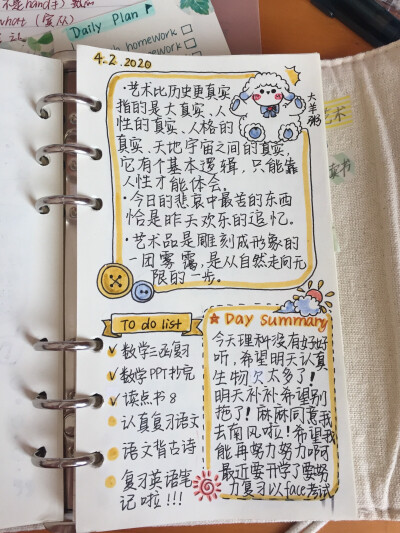 Daily Plan
homework
homework
4.2.2020
·艺术比历史更真实
指的是大真实、人
性的真实、人格的
真实、天地宇宙之间的真实,
它有个基本逻辑,只能靠
人性才能体会。
·今日的悲哀中最苦的东西
恰是昨天欢乐的追忆。
·艺术品是雕刻成形象的
一团雾霭,是从自然走向无
限的一步。
大羊粥
To do list
数学三函复习
数学PPT抄完
读点书 8
认真复习语文
语文背古诗
复习英语笔
记啦!!!
Day summary
今天理科没有好好
听,希望明天认真
生物欠太多了!
明天补补希望别
拖了!麻麻同意我
去南风啦!希望我
能再努力努力啊
最近要开学了要努
力复习以face考试